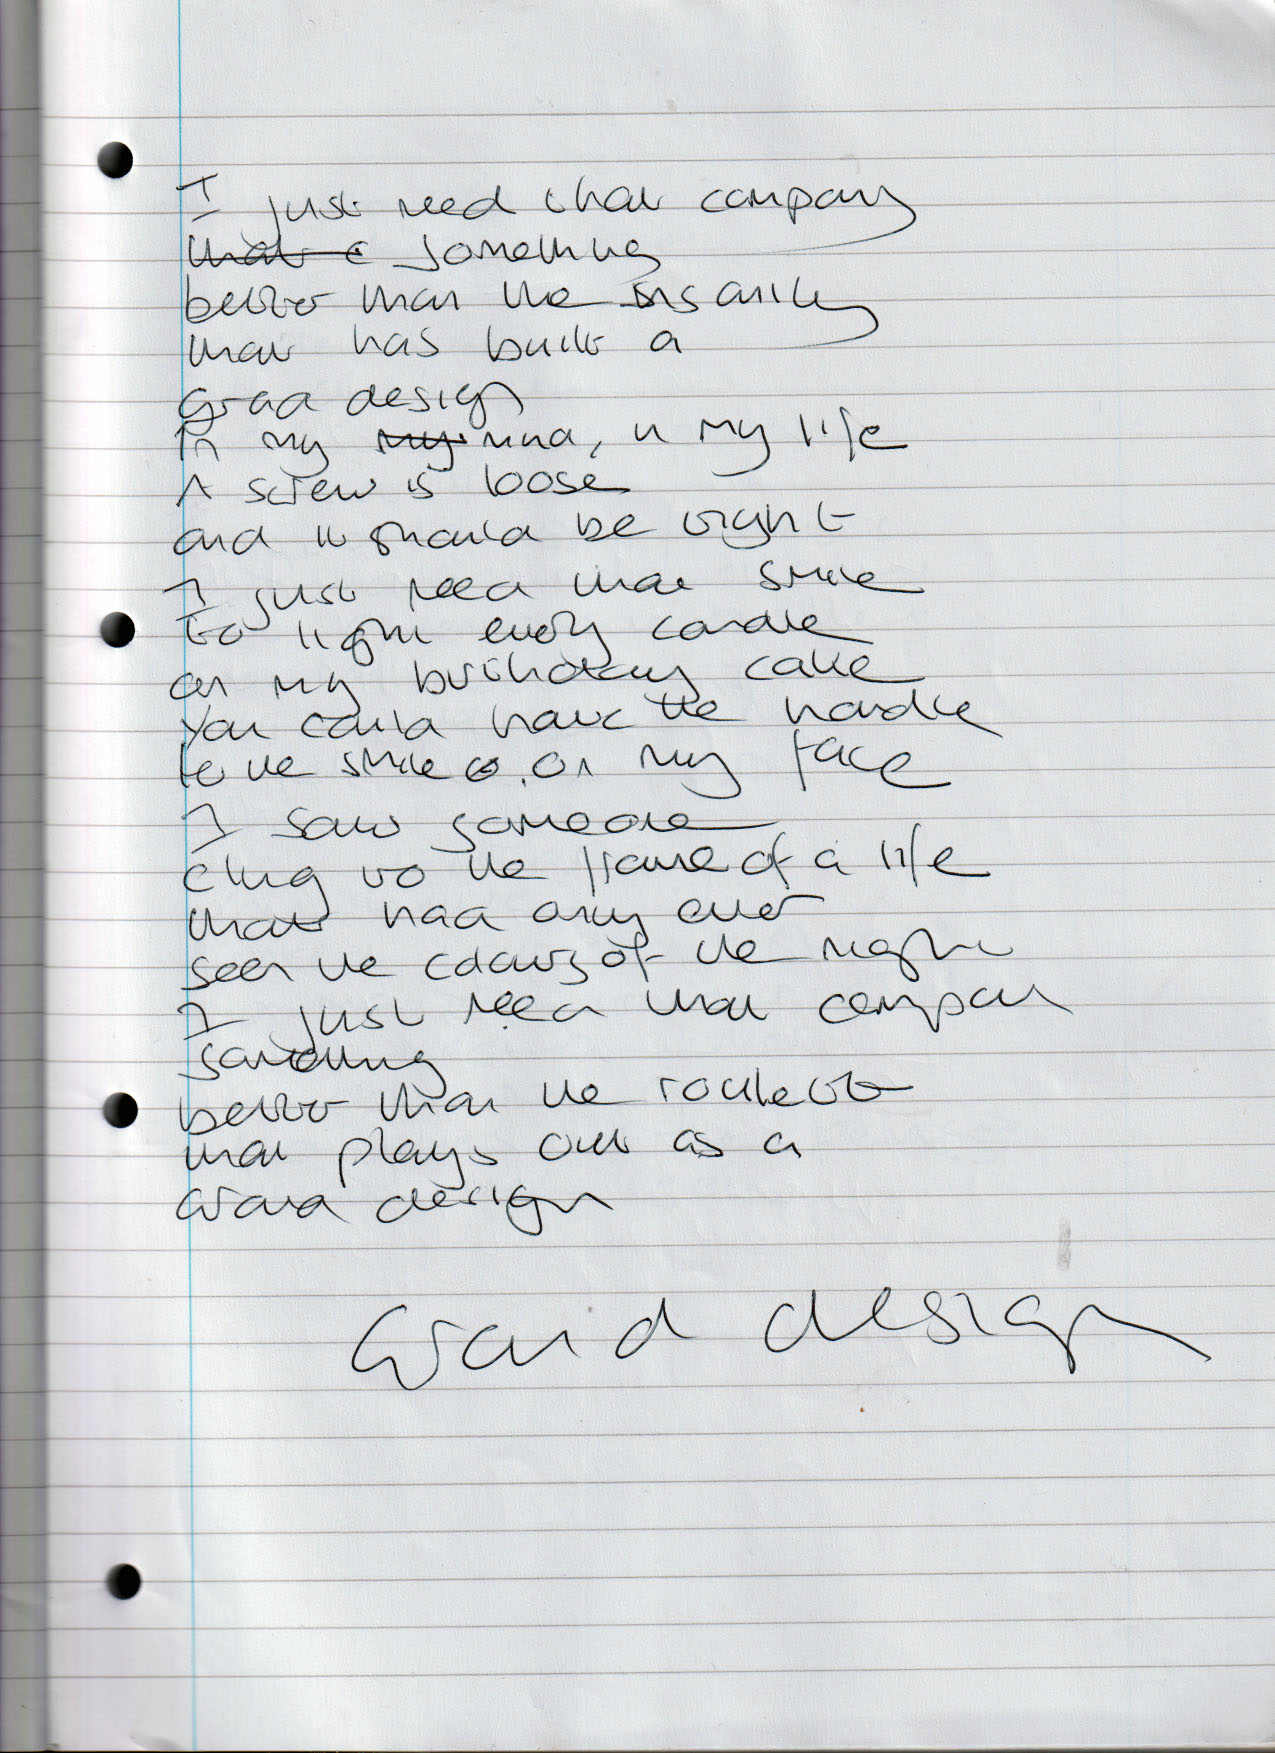 I just need that company
that c something
better than the insanity
that has built a
Grand design
In my my mind, in my life
A screw is loose
and it should be tight
I just need that smile
to light every candle
on my birthday cake
You could have the handle
to the smile on my face
I saw someone
cling to the frame of a life
that had only ever
seen the colours of the night
I just need that company
something
better than the roulette
that plays out as a
Grand design
Grand design